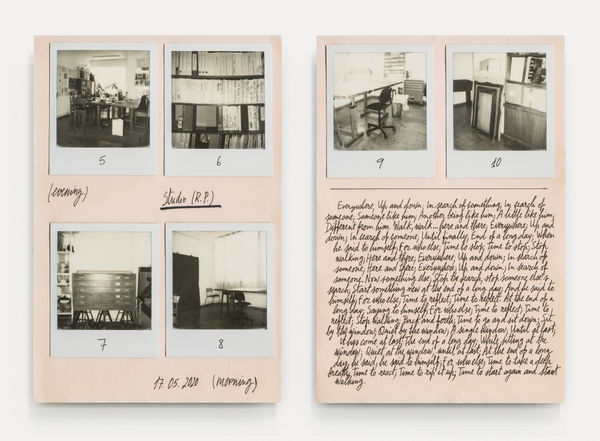 5
6
(evening)
Studio (R.P.)
7
8
17.05.2020 (morning)
9
10
Everywhere; Up and down; in search of something; in search of
someone; Someone like him; Another being like him; A little like him;
Different from him. Walk, walk... here and there; Everywhere; Up and
down; in search of someone; Until finally; End of a long day; When
he said to himself; For who else; Time to stop; Time to stop; Stop
walking; Here and there; Everywhere; Up and down; in search of
someone; Here and there; Everywhere; Up and down; in search of
someone. Now something else; Stop the search; stop someone else's
search; Start something new at the end of a long day; And he said to
himself; For who else; Time to reflect; Time to reflect. At the end of a
long day; Saying to himself; For who else; Time to reflect; Time to
reflect; Stop walking; Back and forth; Time to go and sit down; Sit
by the window; Quiet by the window; A single window; Until at last;
it has come at last the end of a long day; While sitting at the
window; Quiet at the window; until at last; At the end of a long
day, he said; he said to himself; For who else; Time to take a deep
breath; Time to react; Time to rip it up; Time to start again and start
walking.